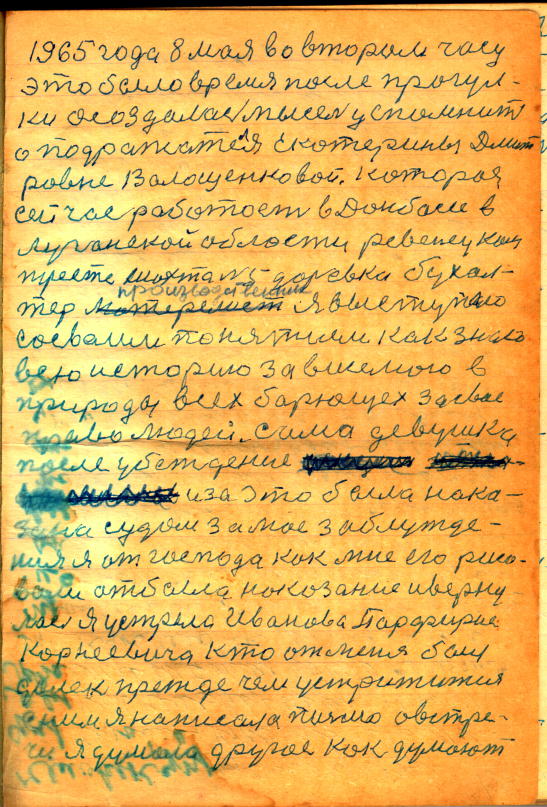 1965 года 8 мая во втором часу
это было время после прогул-
ки создалась мысель успомнит
о подражателя Екотерины Дмит
ровне Валощенковой. Которая
сейчас работоет в Донбасе в
луганской области ревенецком
тресте шохта №5 доревка бухал-
тер производственник я выступаю
соевами понятием как знаю
всю историю зависемого в
природы всех барющех за свое
людей. сама девушка
после убеждение
и за это была нака-
зана судом за мое заблужде-
ния я от господа как мне его рисо-
вали отбыла нокозание и верну-
лась я устрела Иванова Парфирия
Корнеевича кто от меня был
далек прежде чем устретится
с ним я написала писмо овстре-
чи я думала другое как думоют